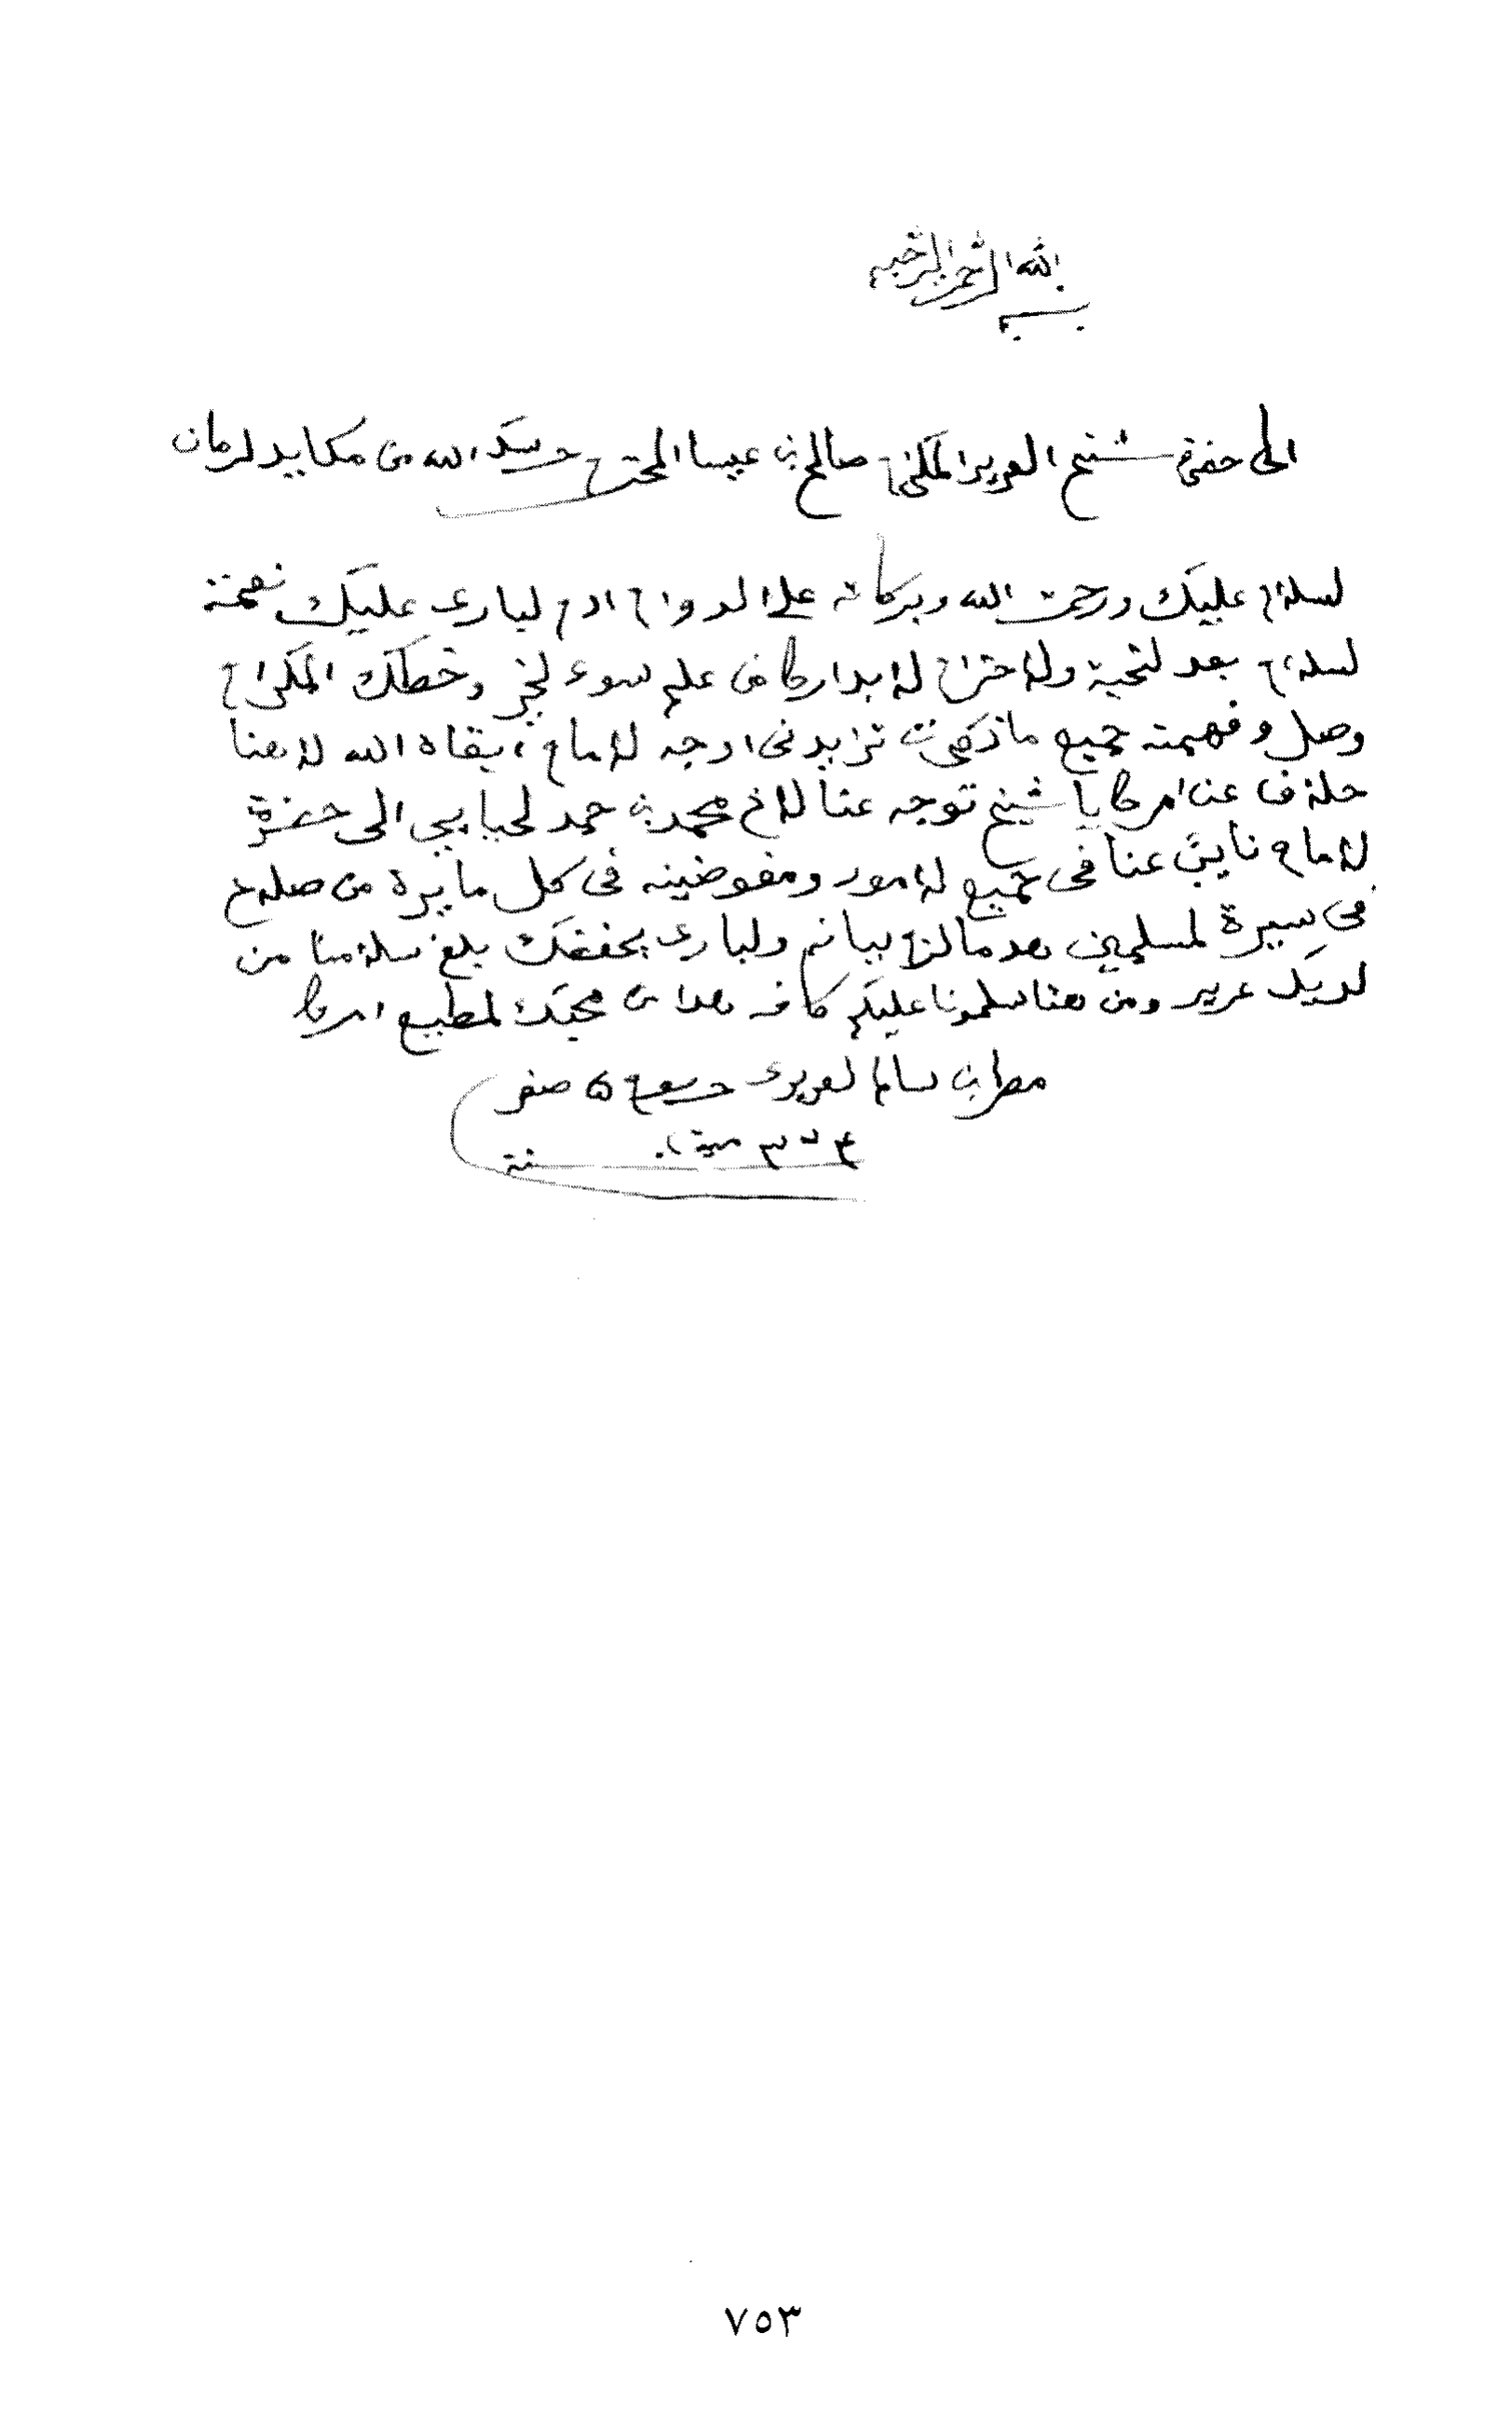 بسم الله الرحمن الرحيم
الى حضرة شيخ العزيز المكرم صالح بن عيسا المحترم حرسك الله من مكايد لزمان
لسلام عليك ورحمت الله وبركاته على الدوام ادم لباري عليك نعمته
لسلام بعد لتحية ولاحترام لا بدا ركا من علم سوء لخير وخطك المكرام
وصل وفهمته جميع ما ذكرت تريدني اوجه لامام ابقاه الله لا هنا
خلاف عن امركا يا شيخ توجه عنا لاخ محمد بن حمد لحبابي الى حضرة
لامام نايب عنا في جميع لامور ومفوضينه في كل ما يره من صلاح
في سيرة لمسلمين هدما لزم بيانه ولباري يحفضك بلغ سلامنا من
لديك عزيز ومن هنا يسلمونا عليكم كافه هدا من محبك لمطيع امركا
مطر بن سالم لعريري حرر يوم ٥ صفر
سنة
٧٥٣